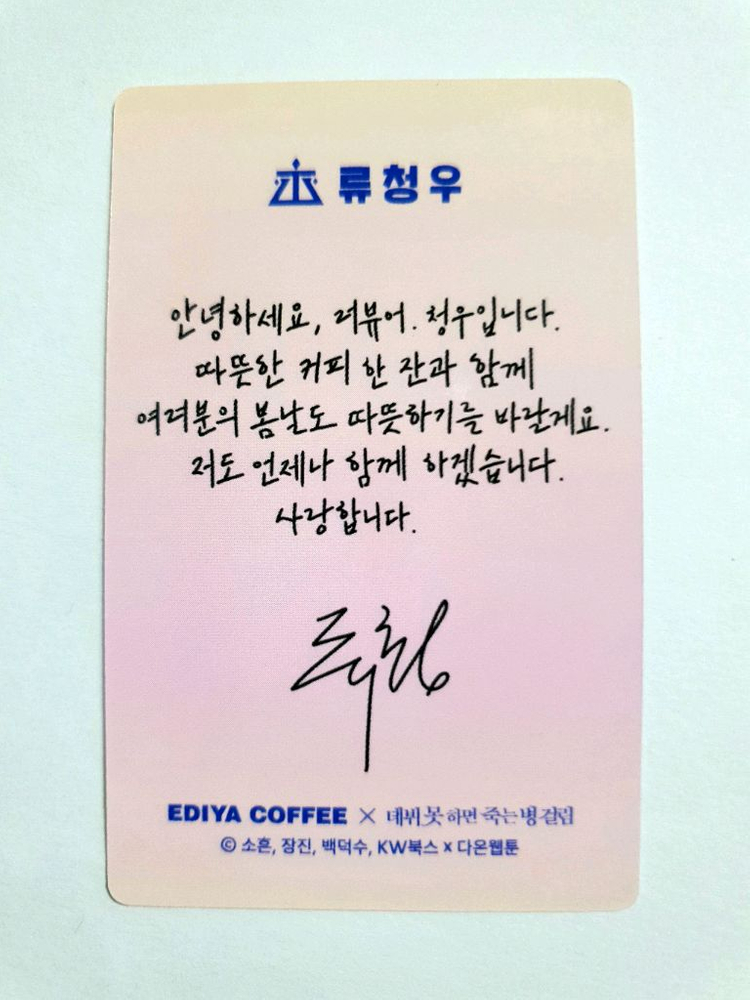 류청우
안녕하세요, 러뷰어. 청우입니다.
따뜻한 커피 한 잔과 함께
여러분의 봄날도 따뜻하기를 바랄게요.
저도 언제나 함께 하겠습니다.
사랑합니다.
EDIYA COFFEE × 데뷔 못 하면 죽는 병 걸림
© 소흔, 장진, 백덕수, KW북스 x 다온웹툰